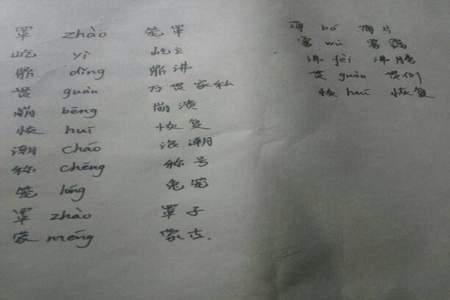 罩 zhào 笼罩
屹 yì 屹立
鼎 dǐng 鼎沸
贯 guàn 万贯家私
崩 bēng 崩溃
恢 huī 恢复
潮 cháo 浪潮
称 chēng 称号
笼 lóng
罩 zhào 罩子
蒙 méng 蒙古.
薄 bó 薄片
雾 wù 雾
沸 fèi 沸腾
贯 guàn
恢 huī 恢复